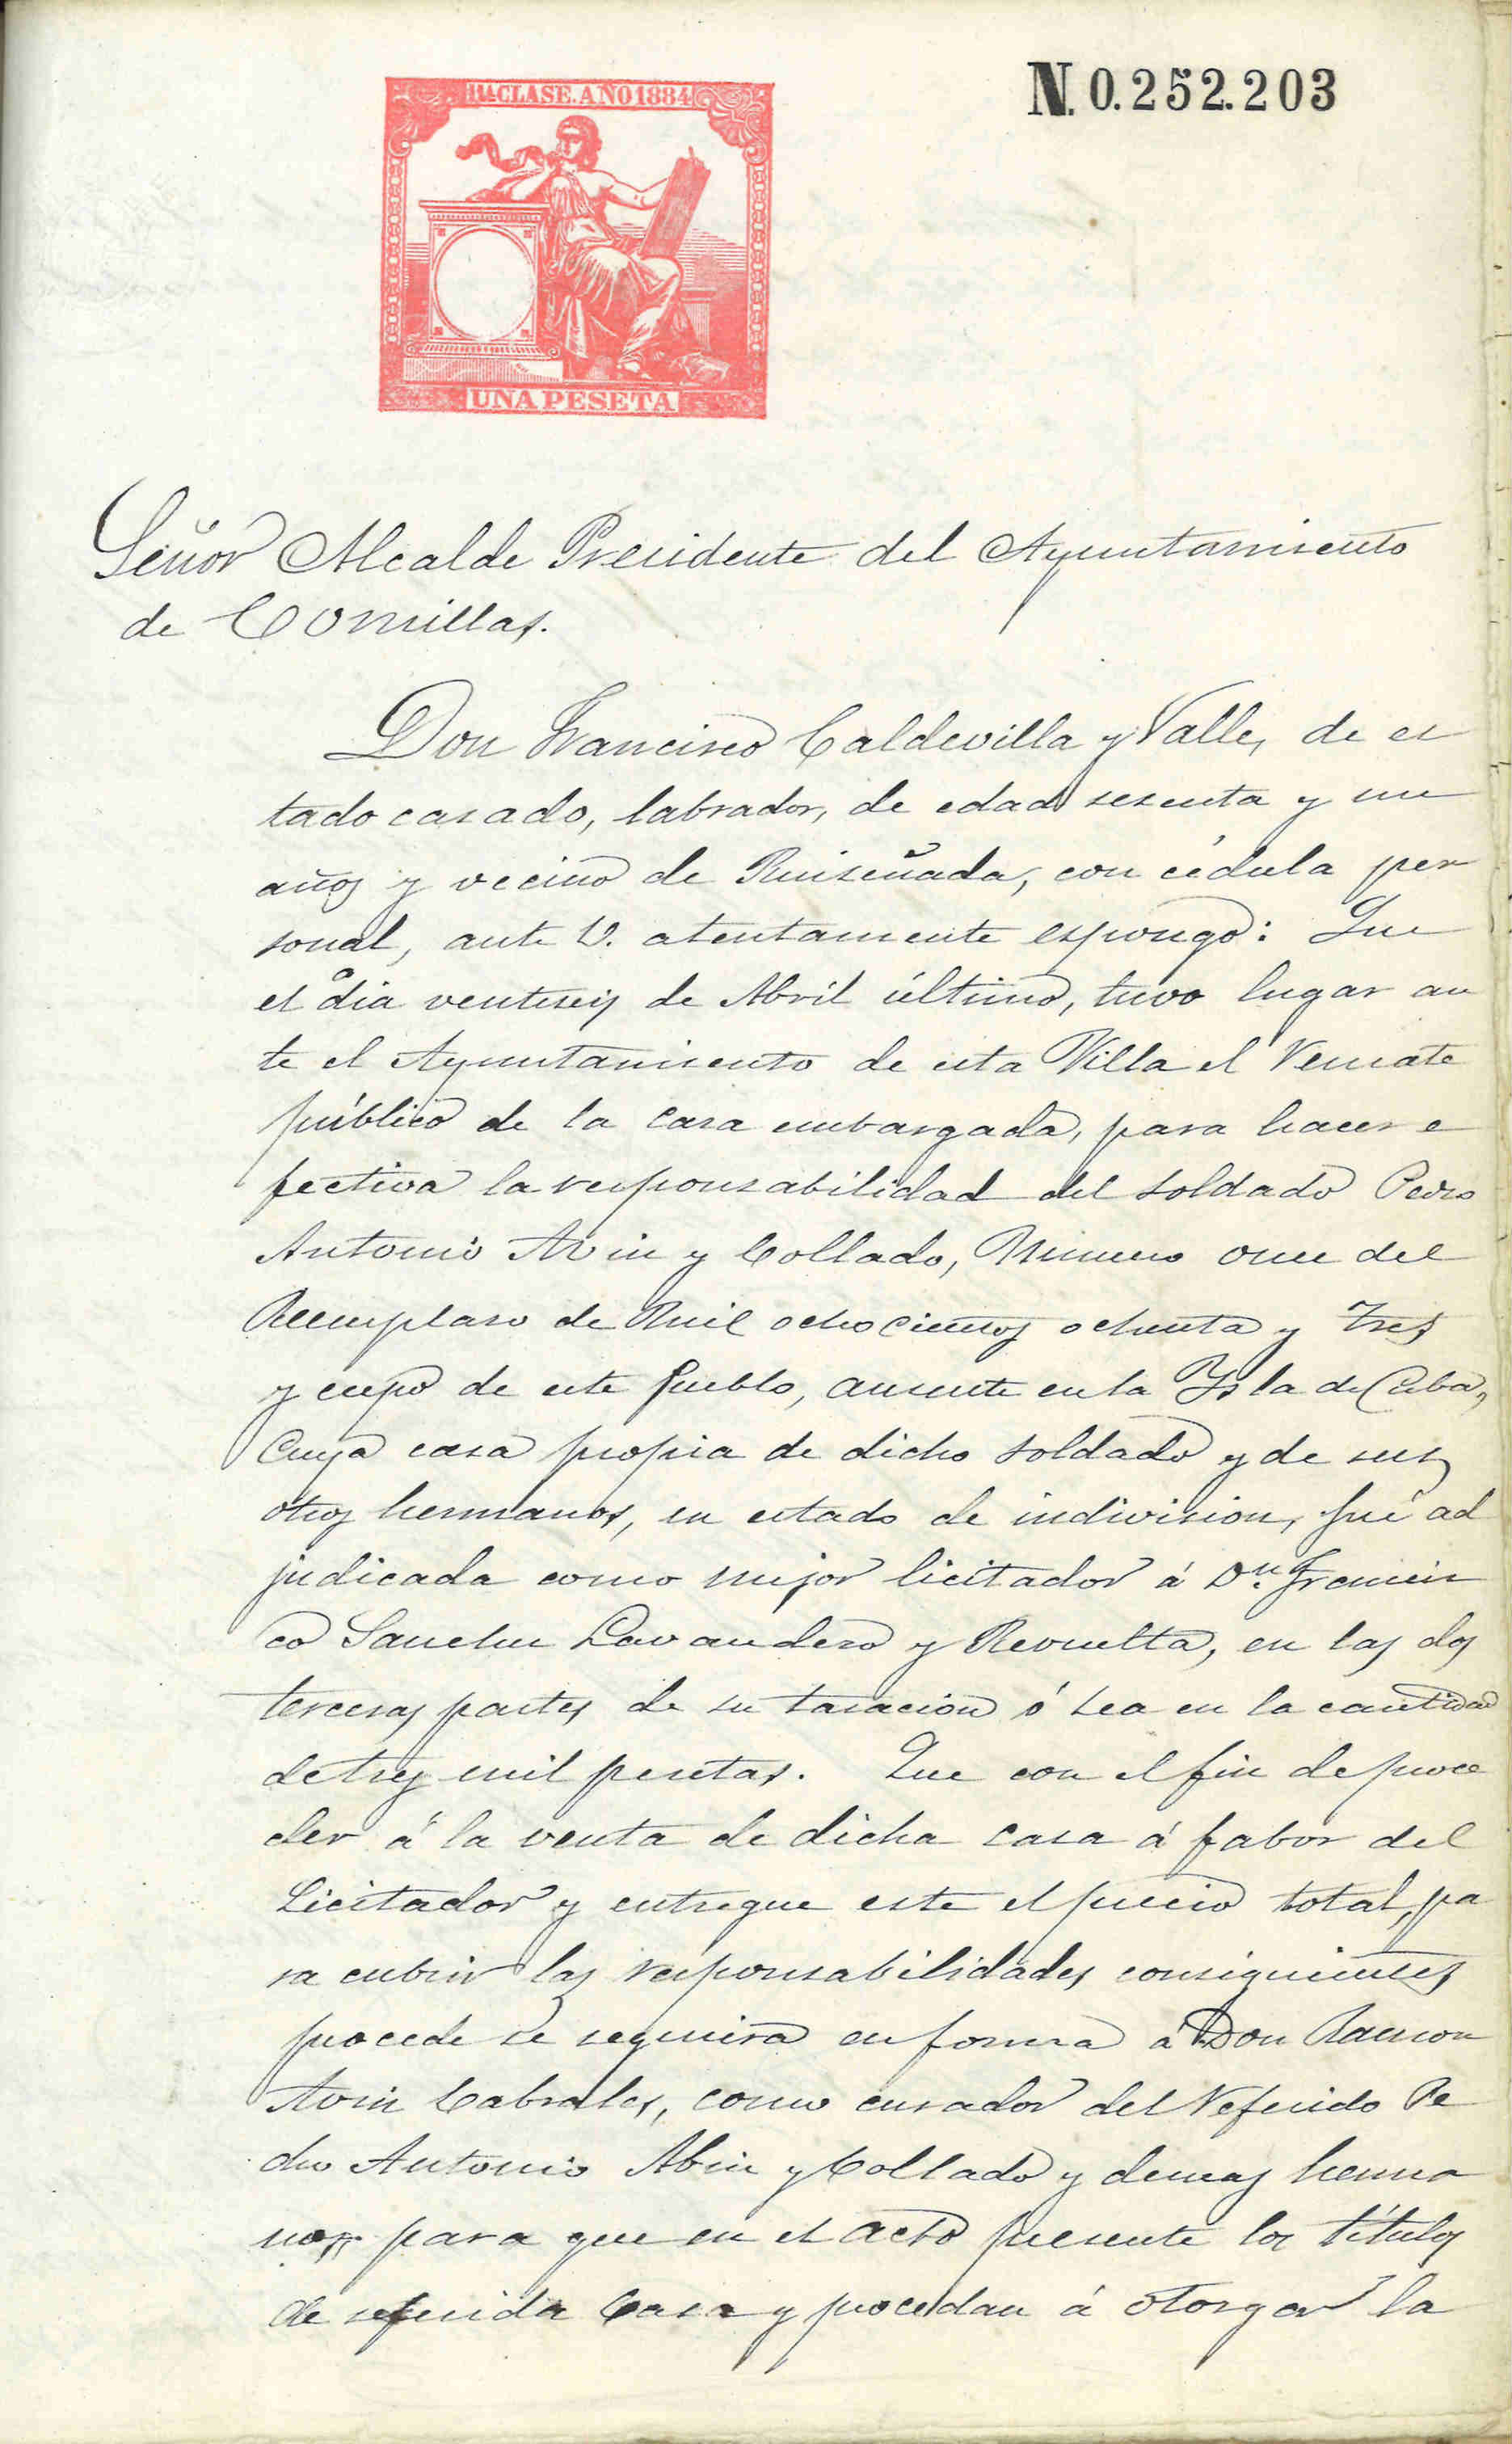 11ª CLASE. AÑO 1884
N. 0.252.203
UNA PESETA
Señor Alcalde Presidente del Ayuntamiento
de Comillas.
Don Francisco Caldevilla y Valle, de es
tado casado, labrador, de edad sesenta y un
años y vecino de Ruiseñada, con cédula per
sonal, ante V. atentamente espongo: Que
el dia ventiseis de Abril último, tuvo lugar an
te el Ayuntamiento de esta Villa el remate
público de la casa embargada, para hacer e
fectiva la responsabilidad del soldado Pedro
Antonio Avin y Collado, Numero once del
Reemplaso de Mil ochocientos ochenta y tres
y cupo de este Pueblo, ausente en la Ysla de Cuba,
Cuya casa propia de dicho soldado y de sus
otros hermanos, en estado de indivision, fué ad
judicada como mejor licitador á Dn. Francis
co Sanchez Lavandero y Revuelta, en las dos
terceras partes de su tasacion ó sea en la cantidad
de tres mil pesetas. Que con el fin de proce
der á la venta de dicha casa á fabor del
Licitador y entregue este el precio total, pa
ra cubrir las responsabilidades consiguientes
procede se requiera en forma á Don Ramon
Avin Cabrales, como curador del referido Pe
dro Antonio Abin y Collado y demas herma
nos para que en el acto presente los títulos
de referida Casa y procedan á otorgar la